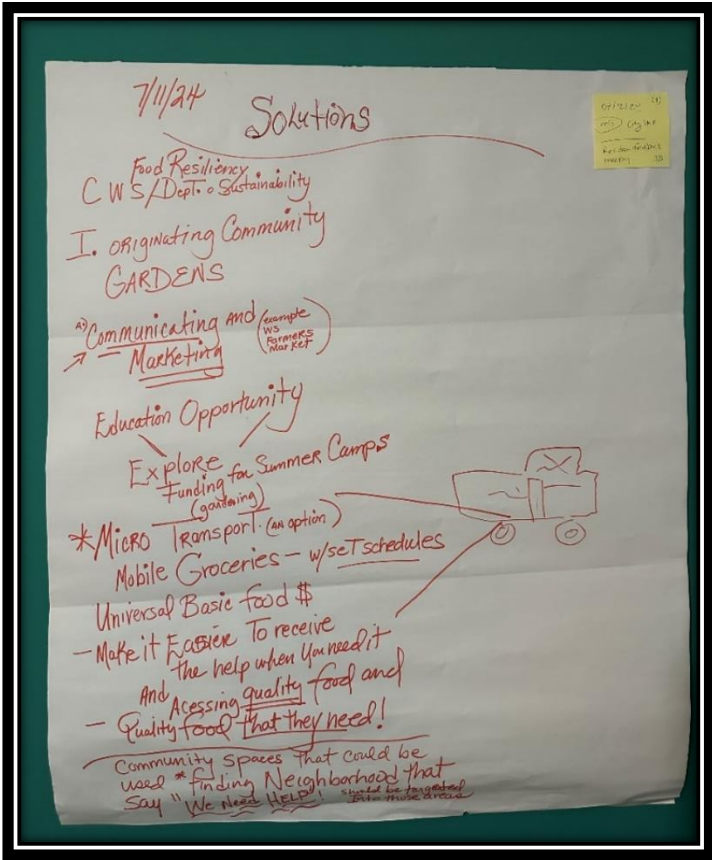 7/11/24
Solutions
Food Resiliency
CWS/Dept. o Sustainability
I. ORIGINATING Community
GARDENS
A) Communicating AND (example
WS
FARMERS
Market)
Marketing
Education Opportunity
Explore
Funding for Summer Camps
(gardening)
*Micro Transport. (AN option)
Mobile Groceries – w/seT schedules
Universal Basic food $
– Make it Easier To receive
the help when You need it
And Acessing quality food and
– Quality food that they need!
Community spaces that could be
used * finding Neighborhood that
Say "We Need HELP"! should be targeted
Into those areas